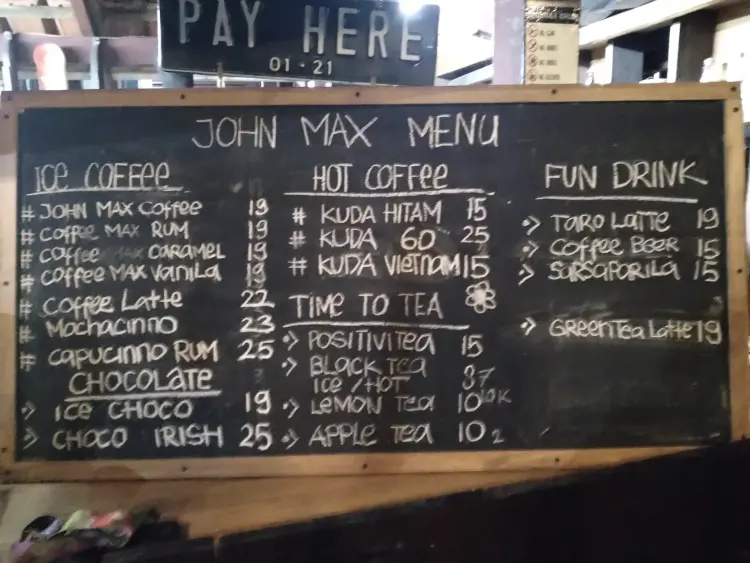 PAY HERE
01-21
JOHN MAX MENU
ICE COFFEE
# JOHN MAX COFFEE 19
# COFFEE MAX RUM 19
# COFFEE MAX CARAMEL 19
# COFFEE MAX VANILA 19
# COFFEE LATTE 22
# MOCHACINNO 23
# CAPUCINNO RUM 25
CHOCOLATE
> ICE CHOCO 19
> CHOCO IRISH 25
HOT COFFEE
# KUDA HITAM 15
# KUDA 60 25
# KUDA VIETNAM 15
TIME TO TEA
> POSITIVITEA 15
> BLACK TEA
ICE / HOT
> LEMON TEA 10
> APPLE TEA 10
FUN DRINK
> TARO LATTE 19
> COFFEE BEER 15
> SARSAPARILA 15
> GREENTEA LATTE 19